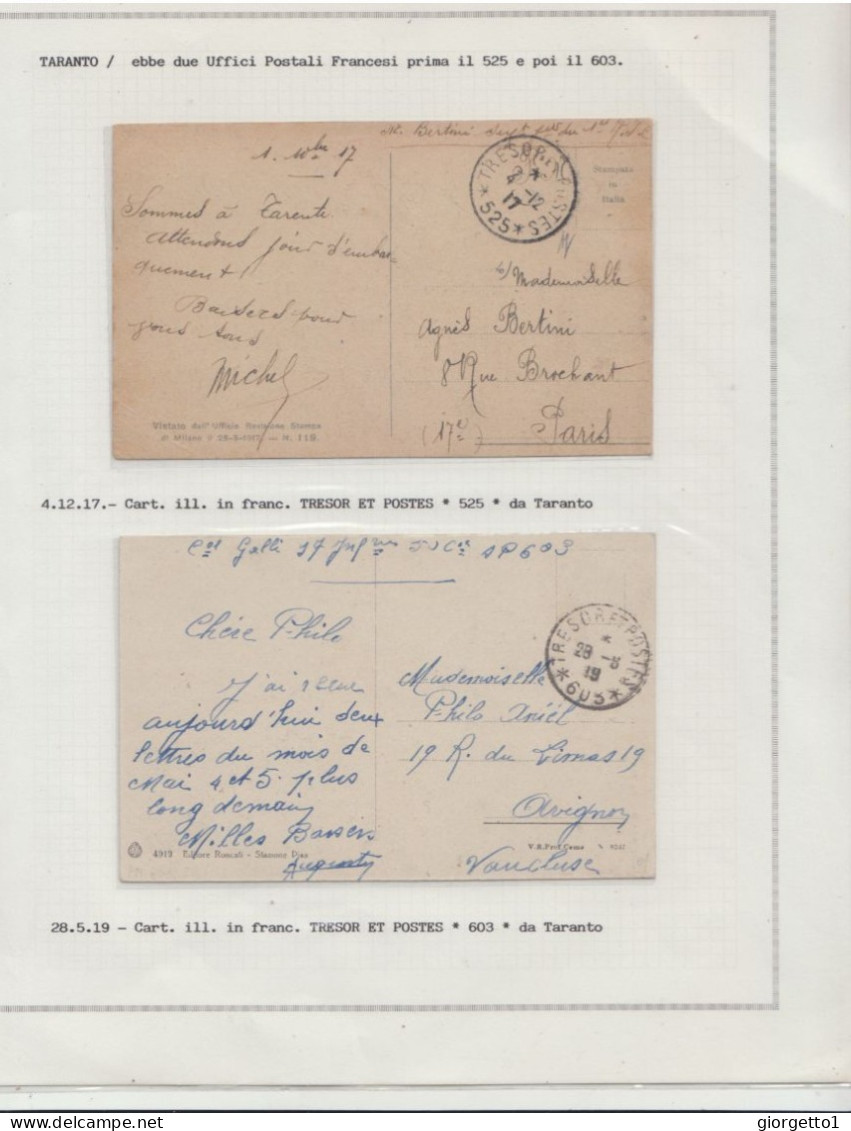 TARANTO / ebbe due Uffici Postali Francesi prima il 525 e poi il 603.
M. Bertini
1. Xbre 17
TRESOR ET POSTES
4 -12
17
* 525 *
Stampata
in
Italia
Sommes à Tarente
attendons jour d'embar-
quement
Baisers pour
vous tous
Michel
Mademoiselle
Agnès Bertini
8 Rue Brochant
(17e) Paris
Visto dall' Ufficio Revisione Stampa
di Milano il 28-8-1917. — N. 118.
4.12.17.- Cart. ill. in franc. TRESOR ET POSTES * 525 * da Taranto
Galli 17 SP 603
TRESOR ET POSTES
*
28 -5
19
* 603 *
Chère Philo
J'ai reçue
aujourd'hui deux
lettres du mois de
Mai 4 et 5. plus
long demain
Milles Baisers
Mademoiselle
Philo
19 R. du 19
Avignon
Vaucluse
4913 Editore Roncati -
28.5.19 - Cart. ill. in franc. TRESOR ET POSTES * 603 * da Taranto
giorgetto1